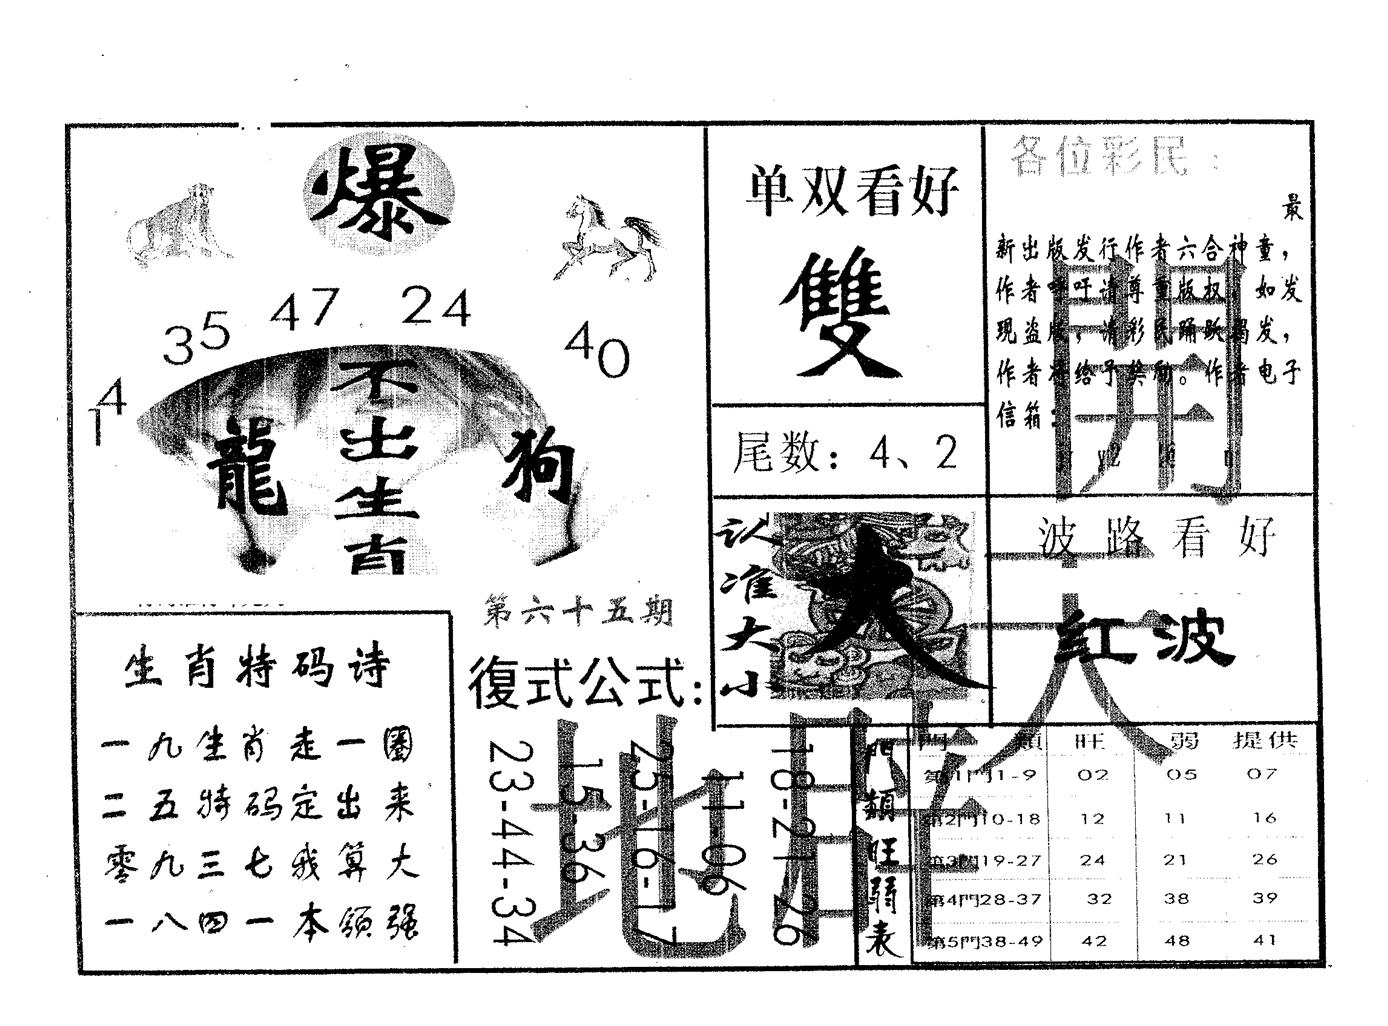 爆
14
35
47
24
40
不出生肖
龍
狗
第六十五期
生肖特码诗
一九生肖走一圈
二五特码定出来
零九三七我算大
一八四一本领强
復式公式:
23-44-34
15-36
25-16-17
11-06
18-21-26
地
单双看好
雙
尾数: 4、2
认准大小
大
各位彩民:
最
新出版发行作者六合神童,
作者呼吁请尊重版权,如发
现盗版,请彩民踊跃揭发,
作者将给予奖励。作者电子
信箱:
開
波路看好
红波
天
門類旺弱表
門類 旺 弱 提供
第1門1-9 02 05 07
第2門10-18 12 11 16
第3門19-27 24 21 26
第4門28-37 32 38 39
第5門38-49 42 48 41